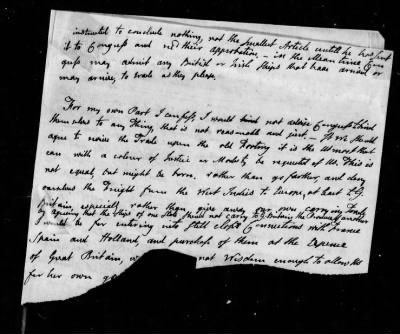 instructed to conclude nothing, not the smallest Article until he has sent
it to Congress and rec their approbation. — in the mean time Con
gress may admit any British or Irish Ships that have arrived or
may arrive, to trade as they please.
For my own Part I confess I would not advise Congress to bind
themselves to any Thing, that is not reasonable and just. — If we should
agree to revive the Trade upon the old Footing it is the utmost that
can with a colour of Justice or Modesty be requested of Us. This is
not equal, but might be born, rather than go farther, and deny
ourselves the Freight from the West Indies to Europe, at least to G.
Britain, especially rather than give away our own carrying Trade,
by agreeing that the Ships of one State should not carry to G. Britain the Produce of another
I would be for entering into still closer Connections with France
Spain and Holland, and purchase of them at the Expence
of Great Britain, not Wisdom enough to allow Us
for her own